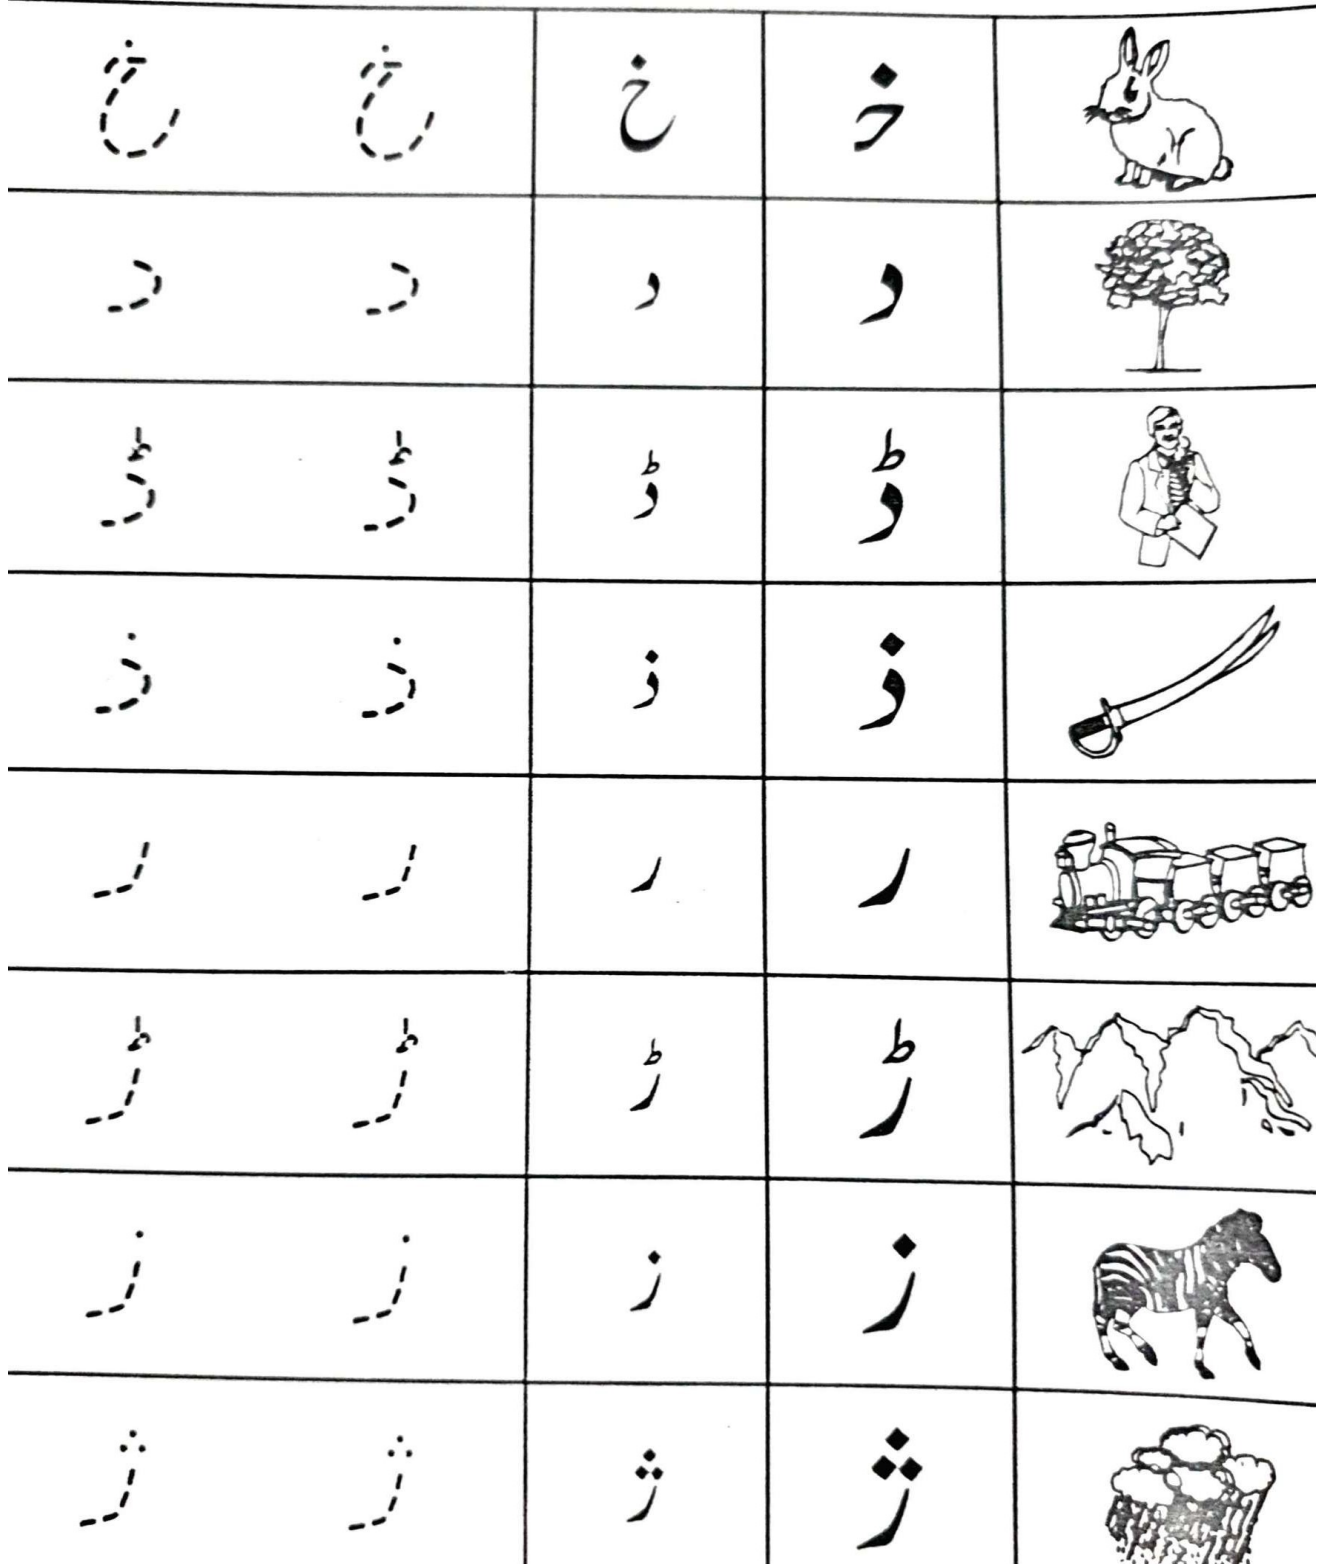 خ‍ خ خ خ
د د د د
ڈ ڈ ڈ ڈ
ذ ذ ذ ذ
ر ر ر ر
ڑ ڑ ڑ ڑ
ز ز ز ز
ژ ژ ژ ژ